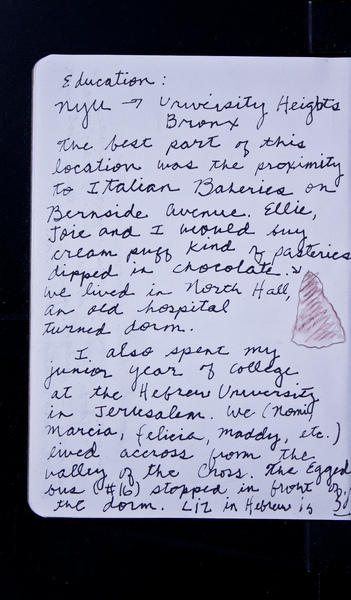 Education:
NYU → University Heights
Bronx
The best part of this
location was the proximity
to Italian Bakeries on
Bernside Avenue. Ellie,
Joie and I would buy
cream puff kind of pasteries
dipped in chocolate.
We lived in North Hall,
an old hospital
turned dorm.
I also spent my
junior year of college
at the Hebrew University
in Jerusalem. We (Nomi,
Marcia, Felicia, Maddy, etc.)
lived accross from the
valley of the Cross. The Egged
bus (#16) stopped in front of
the dorm. Liz in Hebrew is